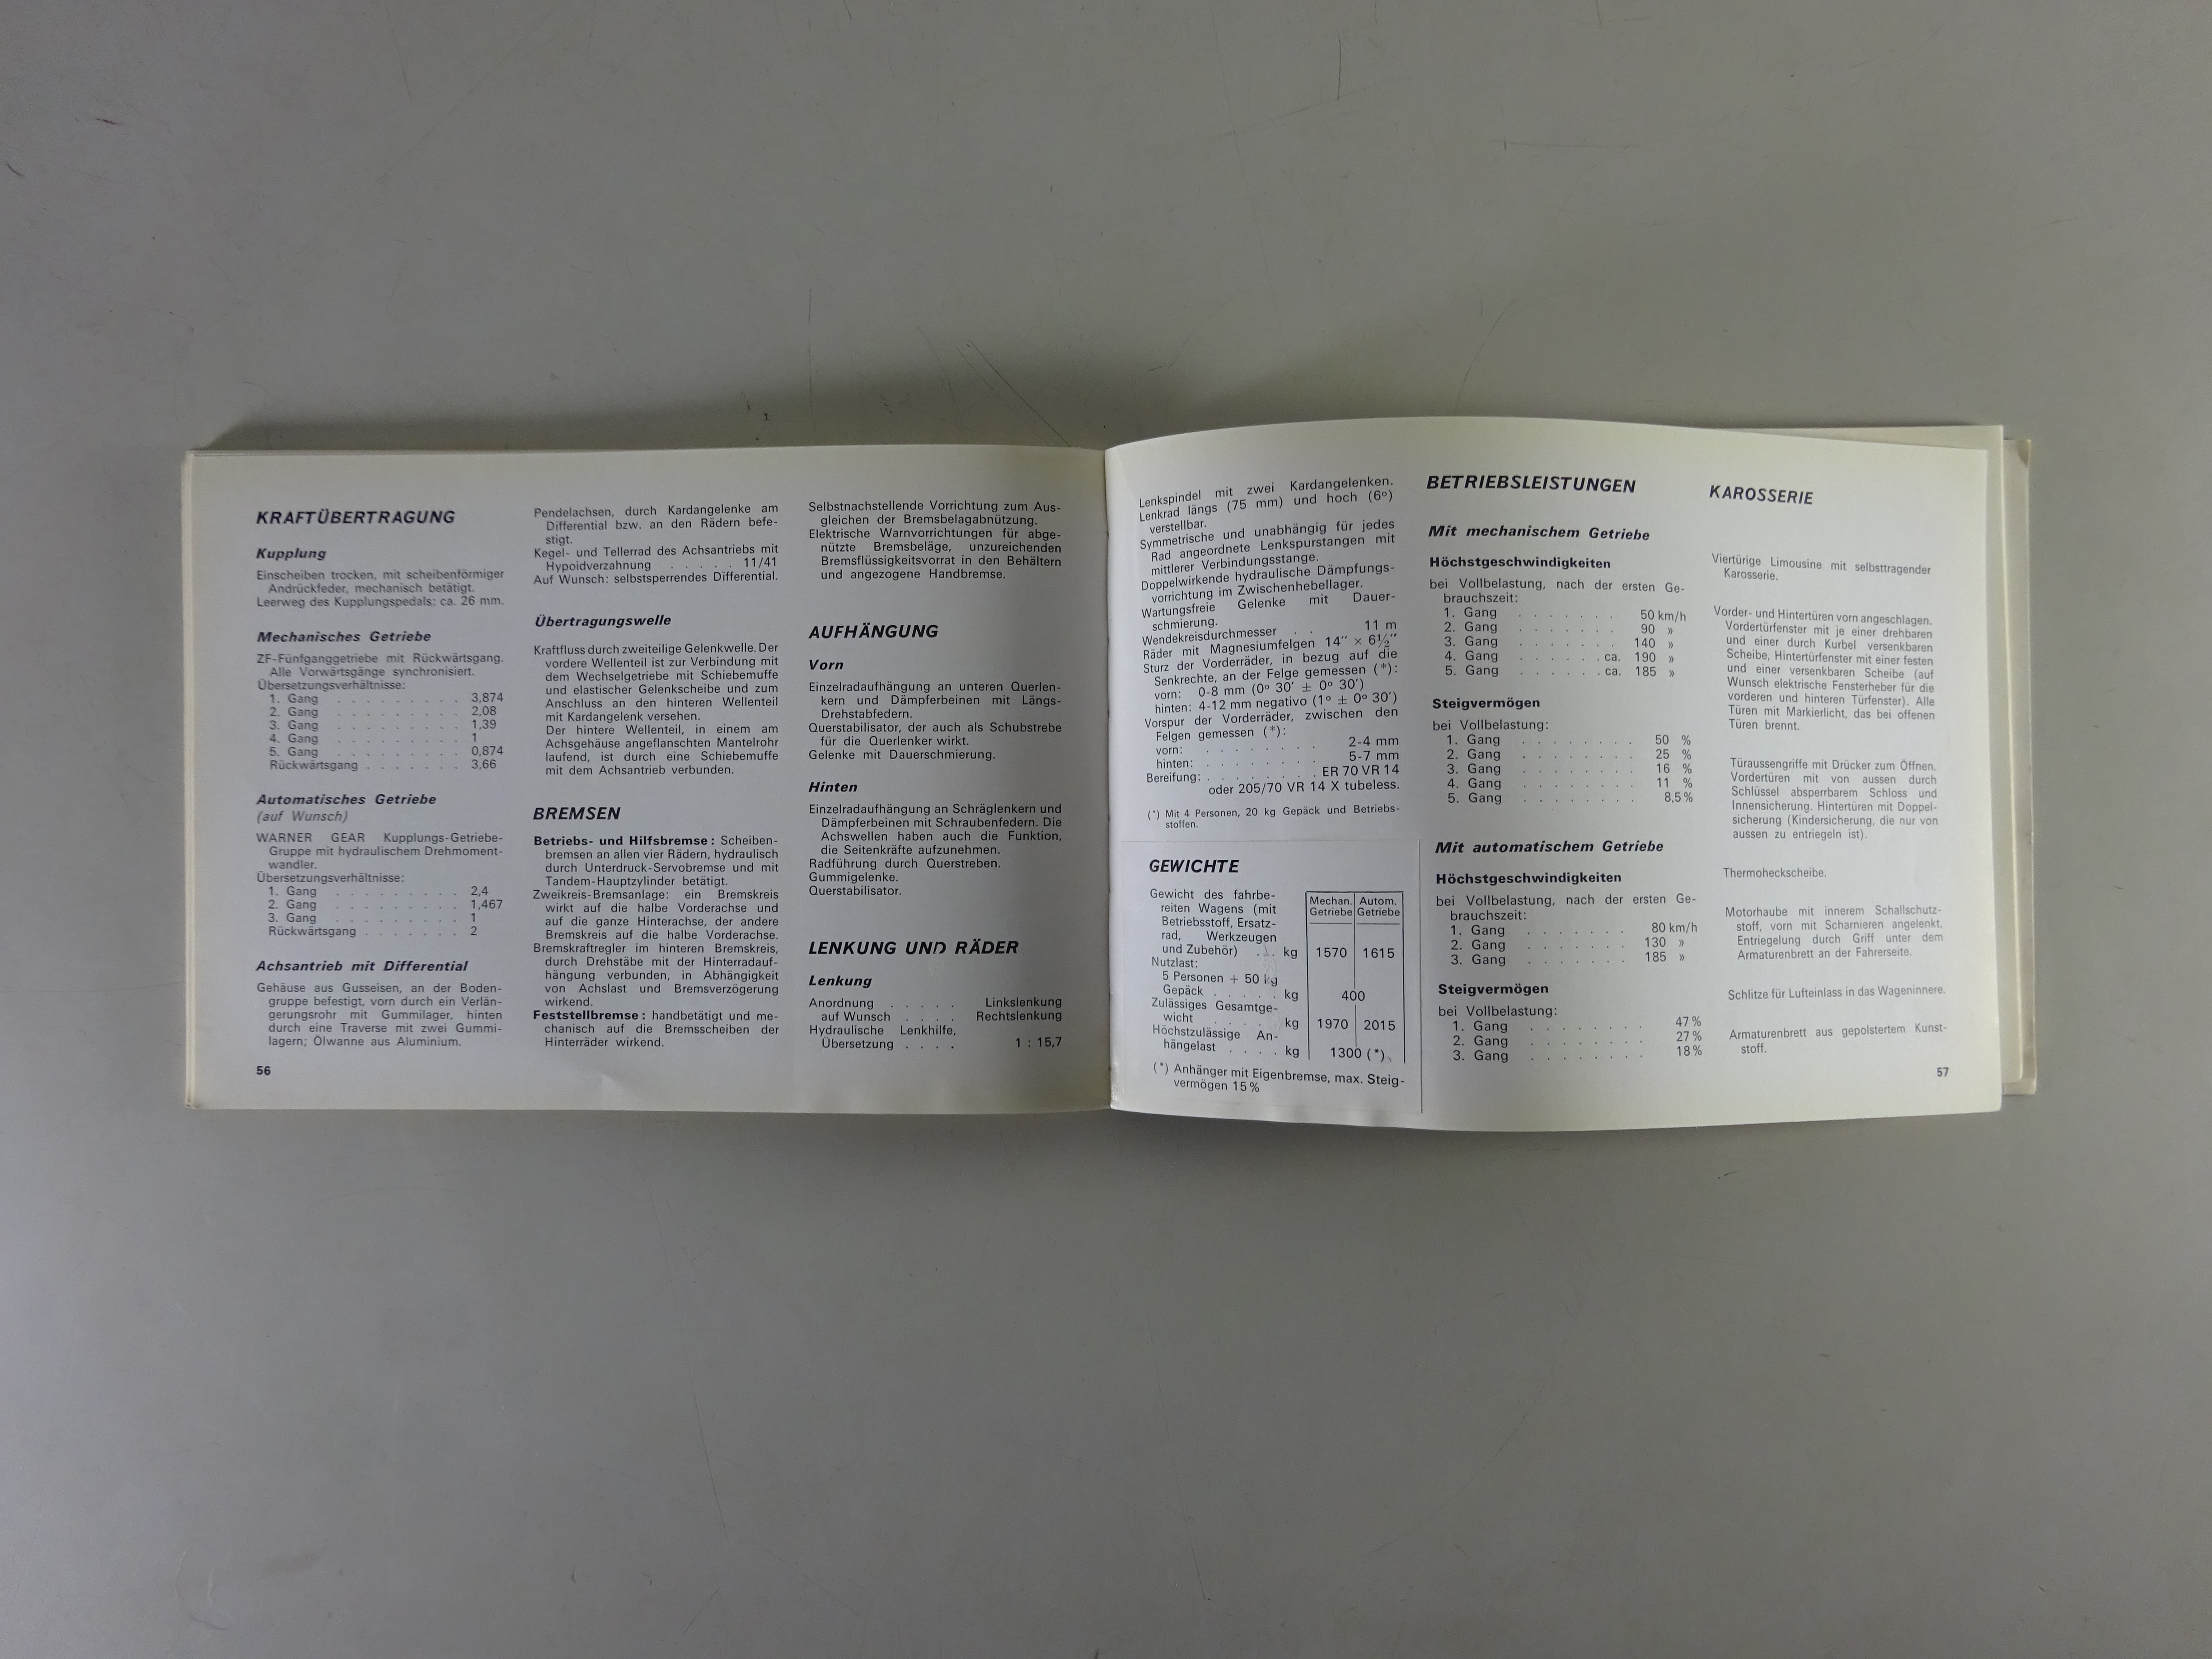 KRAFTÜBERTRAGUNG
Kupplung
Einscheiben trocken, mit scheibenförmiger
Andrückfeder, mechanisch betätigt.
Leerweg des Kupplungspedals: ca. 26 mm.
Mechanisches Getriebe
ZF-Fünfganggetriebe mit Rückwärtsgang.
Alle Vorwärtsgänge synchronisiert.
Übersetzungsverhältnisse:
1. Gang . . . . . . . . . 3,874
2. Gang . . . . . . . . . 2,08
3. Gang . . . . . . . . . 1,39
4. Gang . . . . . . . . . 1
5. Gang . . . . . . . . . 0,874
Rückwärtsgang . . . . . . . 3,66
Automatisches Getriebe
(auf Wunsch)
WARNER GEAR Kupplungs-Getriebe-
Gruppe mit hydraulischem Drehmoment-
wandler.
Übersetzungsverhältnisse:
1. Gang . . . . . . . . . 2,4
2. Gang . . . . . . . . . 1,467
3. Gang . . . . . . . . . 1
Rückwärtsgang . . . . . . . 2
Achsantrieb mit Differential
Gehäuse aus Gusseisen, an der Boden-
gruppe befestigt, vorn durch ein Verlän-
gerungsrohr mit Gummilager, hinten
durch eine Traverse mit zwei Gummi-
lagern; Ölwanne aus Aluminium.
56
Pendelachsen, durch Kardangelenke am
Differential bzw. an den Rädern befe-
stigt.
Kegel- und Tellerrad des Achsantriebs mit
Hypoidverzahnung . . . . . 11/41
Auf Wunsch: selbstsperrendes Differential.
Übertragungswelle
Kraftfluss durch zweiteilige Gelenkwelle. Der
vordere Wellenteil ist zur Verbindung mit
dem Wechselgetriebe mit Schiebemuffe
und elastischer Gelenkscheibe und zum
Anschluss an den hinteren Wellenteil
mit Kardangelenk versehen.
Der hintere Wellenteil, in einem am
Achsgehäuse angeflanschten Mantelrohr
laufend, ist durch eine Schiebemuffe
mit dem Achsantrieb verbunden.
BREMSEN
Betriebs- und Hilfsbremse : Scheiben-
bremsen an allen vier Rädern, hydraulisch
durch Unterdruck-Servobremse und mit
Tandem-Hauptzylinder betätigt.
Zweikreis-Bremsanlage: ein Bremskreis
wirkt auf die halbe Vorderachse und
auf die ganze Hinterachse, der andere
Bremskreis auf die halbe Vorderachse.
Bremskraftregler im hinteren Bremskreis,
durch Drehstäbe mit der Hinterradauf-
hängung verbunden, in Abhängigkeit
von Achslast und Bremsverzögerung
wirkend.
Feststellbremse : handbetätigt und me-
chanisch auf die Bremsscheiben der
Hinterräder wirkend.
Selbstnachstellende Vorrichtung zum Aus-
gleichen der Bremsbelagabnützung.
Elektrische Warnvorrichtungen für abge-
nützte Bremsbeläge, unzureichenden
Bremsflüssigkeitsvorrat in den Behältern
und angezogene Handbremse.
AUFHÄNGUNG
Vorn
Einzelradaufhängung an unteren Querlen-
kern und Dämpferbeinen mit Längs-
Drehstabfedern.
Querstabilisator, der auch als Schubstrebe
für die Querlenker wirkt.
Gelenke mit Dauerschmierung.
Hinten
Einzelradaufhängung an Schräglenkern und
Dämpferbeinen mit Schraubenfedern. Die
Achswellen haben auch die Funktion,
die Seitenkräfte aufzunehmen.
Radführung durch Querstreben.
Gummigelenke.
Querstabilisator.
LENKUNG UND RÄDER
Lenkung
Anordnung . . . . . Linkslenkung
auf Wunsch . . . . Rechtslenkung
Hydraulische Lenkhilfe,
Übersetzung . . . . 1 : 15,7
Lenkspindel mit zwei Kardangelenken.
Lenkrad längs (75 mm) und hoch (6º)
verstellbar.
Symmetrische und unabhängig für jedes
Rad angeordnete Lenkspurstangen mit
mittlerer Verbindungsstange.
Doppelwirkende hydraulische Dämpfungs-
vorrichtung im Zwischenhebellager.
Wartungsfreie Gelenke mit Dauer-
schmierung.
Wendekreisdurchmesser . . 11 m
Räder mit Magnesiumfelgen 14" × 6½"
Sturz der Vorderräder, in bezug auf die
Senkrechte, an der Felge gemessen (*):
vorn: 0-8 mm (0º 30' ± 0º 30')
hinten: 4-12 mm negativo (1º ± 0º 30')
Vorspur der Vorderräder, zwischen den
Felgen gemessen (*):
vorn: . . . . . . . . 2-4 mm
hinten: . . . . . . . . 5-7 mm
Bereifung: . . . . . . . . ER 70 VR 14
oder 205/70 VR 14 X tubeless.
(*) Mit 4 Personen, 20 kg Gepäck und Betriebs-
stoffen.
GEWICHTE
Mechan. Autom.
Getriebe Getriebe
Gewicht des fahrbe-
reiten Wagens (mit
Betriebsstoff, Ersatz-
rad, Werkzeugen
und Zubehör) . . . kg 1570 1615
Nutzlast:
5 Personen + 50 kg
Gepäck . . . . . kg 400
Zulässiges Gesamtge-
wicht . . . . . kg 1970 2015
Höchstzulässige An-
hängelast . . . . kg 1300 (*)
(*) Anhänger mit Eigenbremse, max. Steig-
vermögen 15%
BETRIEBSLEISTUNGEN
Mit mechanischem Getriebe
Höchstgeschwindigkeiten
bei Vollbelastung, nach der ersten Ge-
brauchszeit:
1. Gang . . . . . . . 50 km/h
2. Gang . . . . . . . 90 »
3. Gang . . . . . . . 140 »
4. Gang . . . . . . ca. 190 »
5. Gang . . . . . . ca. 185 »
Steigvermögen
bei Vollbelastung:
1. Gang . . . . . . . . 50 %
2. Gang . . . . . . . . 25 %
3. Gang . . . . . . . . 16 %
4. Gang . . . . . . . . 11 %
5. Gang . . . . . . . . 8,5%
Mit automatischem Getriebe
Höchstgeschwindigkeiten
bei Vollbelastung, nach der ersten Ge-
brauchszeit:
1. Gang . . . . . . . 80 km/h
2. Gang . . . . . . . 130 »
3. Gang . . . . . . . 185 »
Steigvermögen
bei Vollbelastung:
1. Gang . . . . . . . . 47%
2. Gang . . . . . . . . 27%
3. Gang . . . . . . . . 18%
KAROSSERIE
Viertürige Limousine mit selbsttragender
Karosserie.
Vorder- und Hintertüren vorn angeschlagen.
Vordertürfenster mit je einer drehbaren
und einer durch Kurbel versenkbaren
Scheibe, Hintertürfenster mit einer festen
und einer versenkbaren Scheibe (auf
Wunsch elektrische Fensterheber für die
vorderen und hinteren Türfenster). Alle
Türen mit Markierlicht, das bei offenen
Türen brennt.
Türaussengriffe mit Drücker zum Öffnen.
Vordertüren mit von aussen durch
Schlüssel absperrbarem Schloss und
Innensicherung. Hintertüren mit Doppel-
sicherung (Kindersicherung, die nur von
aussen zu entriegeln ist).
Thermoheckscheibe.
Motorhaube mit innerem Schallschutz-
stoff, vorn mit Scharnieren angelenkt.
Entriegelung durch Griff unter dem
Armaturenbrett an der Fahrerseite.
Schlitze für Lufteinlass in das Wageninnere.
Armaturenbrett aus gepolstertem Kunst-
stoff.
57